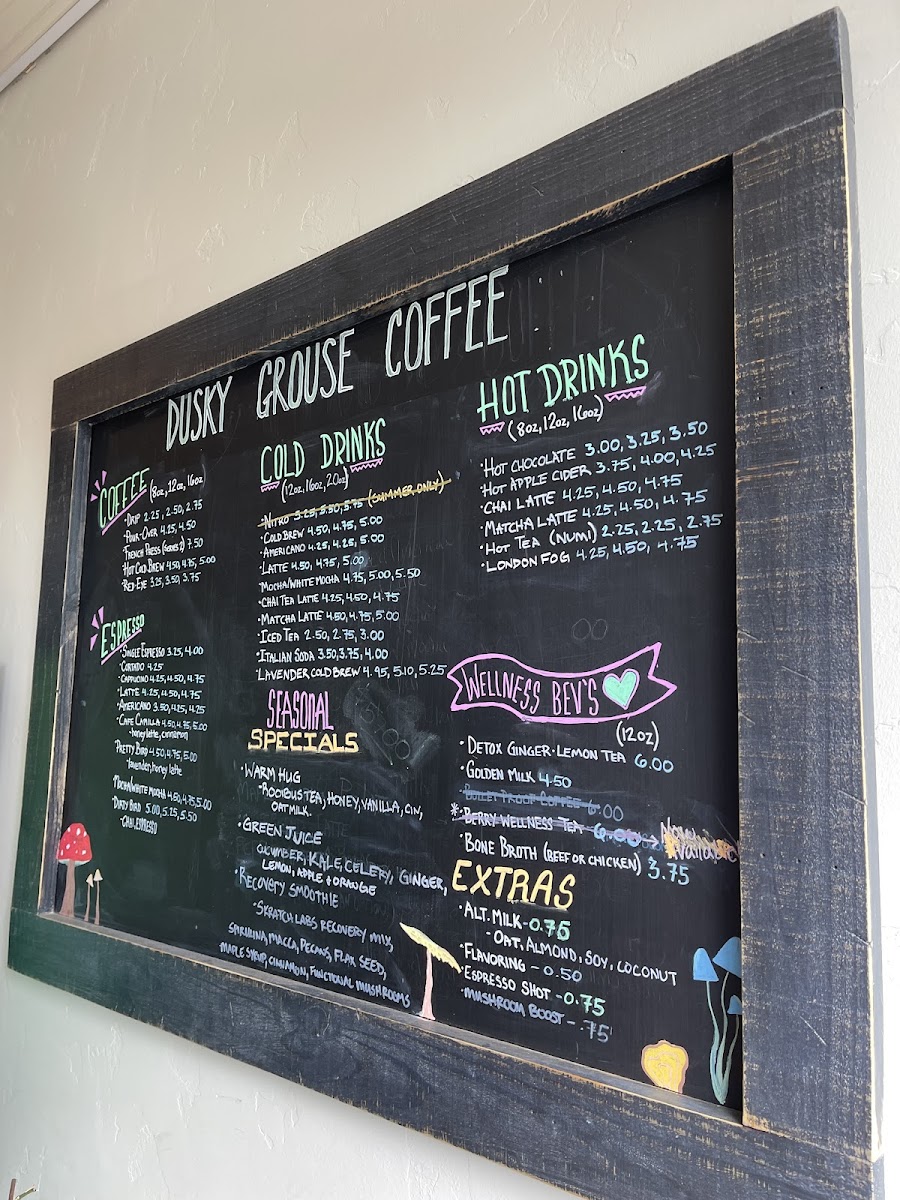 DUSKY GROUSE COFFEE
COFFEE (8oz, 12oz, 16oz)
· DRIP 2.25, 2.50, 2.75
· POUR-OVER 4.25, 4.50
· FRENCH PRESS (SERVES 2) 7.50
· HOT COLD BREW 4.50, 4.75, 5.00
· RED-EYE 3.25, 3.50, 3.75
ESPRESSO
· SINGLE ESPRESSO 3.25, 4.00
· CORTADO 4.25
· CAPPUCINO 4.25, 4.50, 4.75
· LATTE 4.25, 4.50, 4.75
· AMERICANO 3.50, 4.25, 4.25
· CAFE CAMILLA 4.50, 4.75, 5.00
- honey latte, cinnamon
· PRETTY BIRD 4.50, 4.75, 5.00
- lavender, honey latte
· MOCHA/WHITE MOCHA 4.50, 4.75, 5.00
· DIRTY BIRD 5.00, 5.25, 5.50
- CHAI, ESPRESSO
COLD DRINKS
(12oz, 16oz, 20oz)
· NITRO 3.25, 3.50, 3.75 (SUMMER ONLY)
· COLD BREW 4.50, 4.75, 5.00
· AMERICANO 4.25, 4.25, 5.00
· LATTE 4.50, 4.75, 5.00
· MOCHA/WHITE MOCHA 4.75, 5.00, 5.50
· CHAI TEA LATTE 4.25, 4.50, 4.75
· MATCHA LATTE 4.50, 4.75, 5.00
· ICED TEA 2.50, 2.75, 3.00
· ITALIAN SODA 3.50, 3.75, 4.00
· LAVENDER COLD BREW 4.95, 5.10, 5.25
SEASONAL
SPECIALS
· WARM HUG
- ROOIBUS TEA, HONEY, VANILLA, CIN,
OAT MILK.
· GREEN JUICE
CUCUMBER, KALE, CELERY, GINGER,
LEMON, APPLE + ORANGE
· RECOVERY SMOOTHIE
- SKRATCH LABS RECOVERY MIX,
SPIRULINA, MACCA, PECANS, FLAX SEED,
MAPLE SYRUP, CINNAMON, FUNCTIONAL MUSHROOMS
HOT DRINKS
(8oz, 12oz, 16oz)
· HOT CHOCOLATE 3.00, 3.25, 3.50
· HOT APPLE CIDER 3.75, 4.00, 4.25
· CHAI LATTE 4.25, 4.50, 4.75
· MATCHA LATTE 4.25, 4.50, 4.75
· HOT TEA (NUMI) 2.25, 2.25, 2.75
· LONDON FOG 4.25, 4.50, 4.75
WELLNESS BEV'S
(12oz)
· DETOX GINGER·LEMON TEA 6.00
· GOLDEN MILK 4.50
· BULLET PROOF COFFEE 6.00
* · BERRY WELLNESS TEA - 6.00 → Available
· BONE BROTH (BEEF OR CHICKEN) 3.75
EXTRAS
· ALT. MILK - 0.75
- OAT, ALMOND, SOY, COCONUT
· FLAVORING - 0.50
· ESPRESSO SHOT - 0.75
· MUSHROOM BOOST - .75